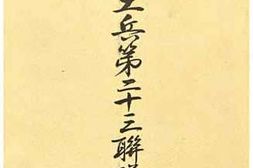 工兵第二十三聯